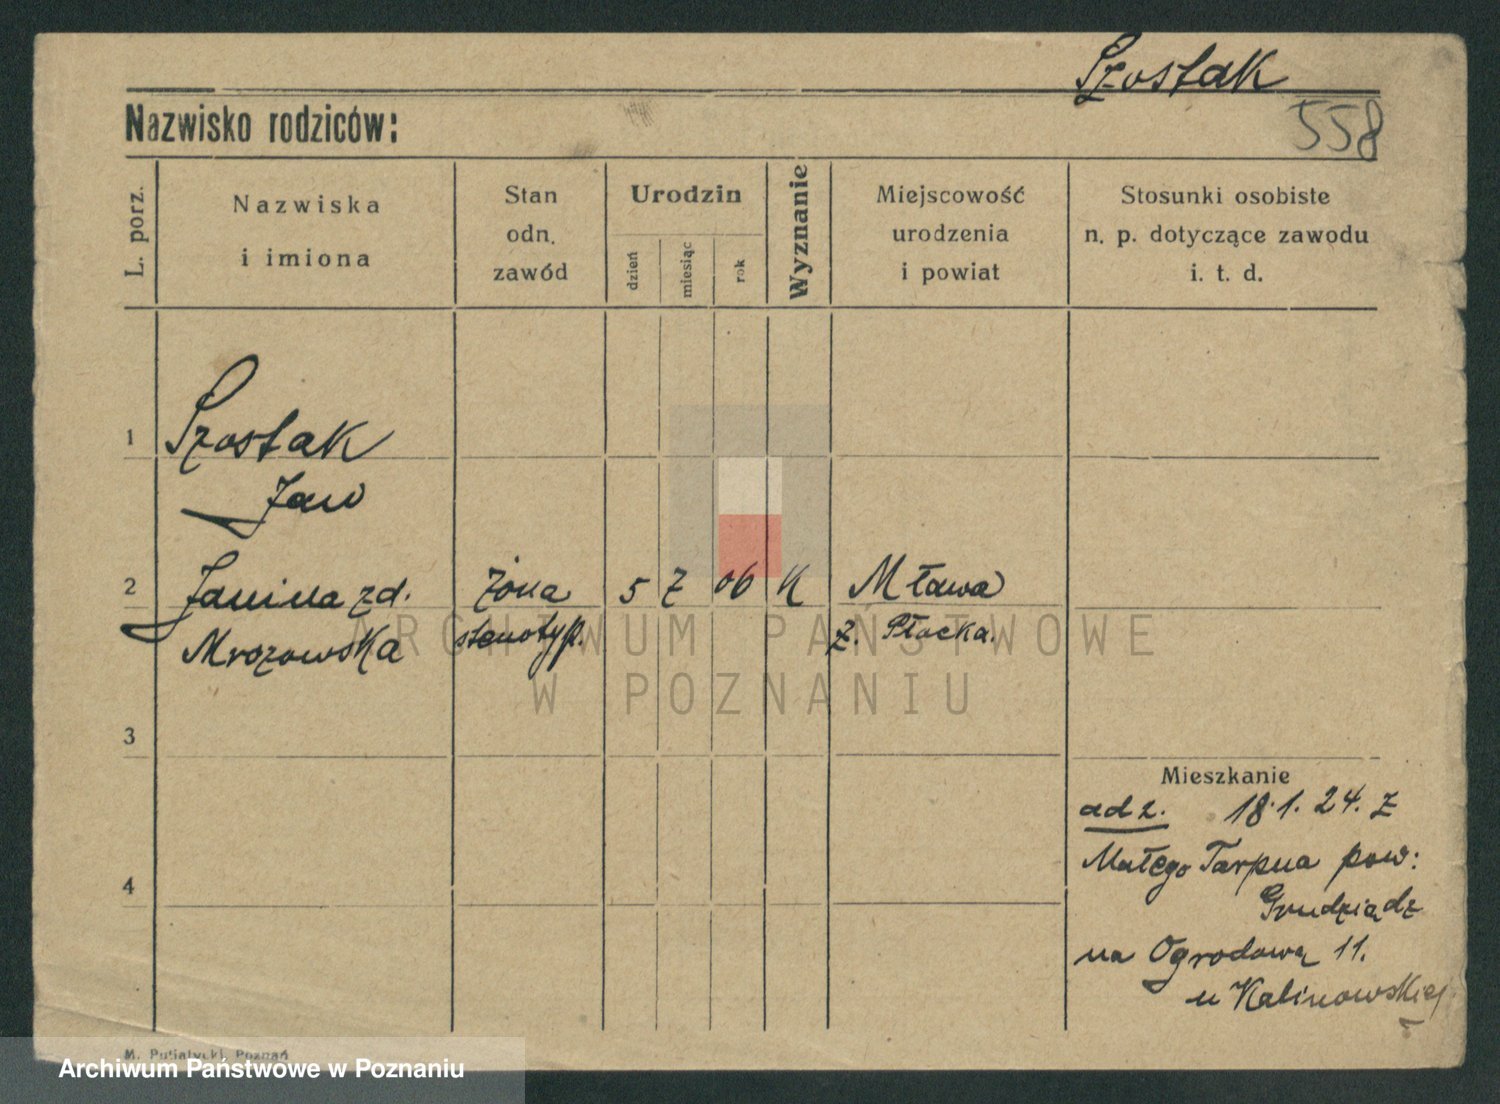 Szostak
Nazwisko rodziców:
558
L. porz.
Nazwiska
i imiona
Stan
odn.
zawód
Urodzin
dzień
miesiąc
rok
Wyznanie
Miejscowość
urodzenia
i powiat
Stosunki osobiste
n. p. dotyczące zawodu
i. t. d.
1
Szostak
Jan
2
Janina zd. żona 5 2 06 K Mława
Mrozowska stenotyp. z. Płocka.
ARCHIWUM PAŃSTWOWE
W POZNANIU
3
Mieszkanie
18.1.24. z
Małego Tarpna pow:
4
Grudziądz
na Ogrodową 11.
u Kalinowskiej
M. Putiatycki, Poznań
Archiwum Państwowe w Poznaniu